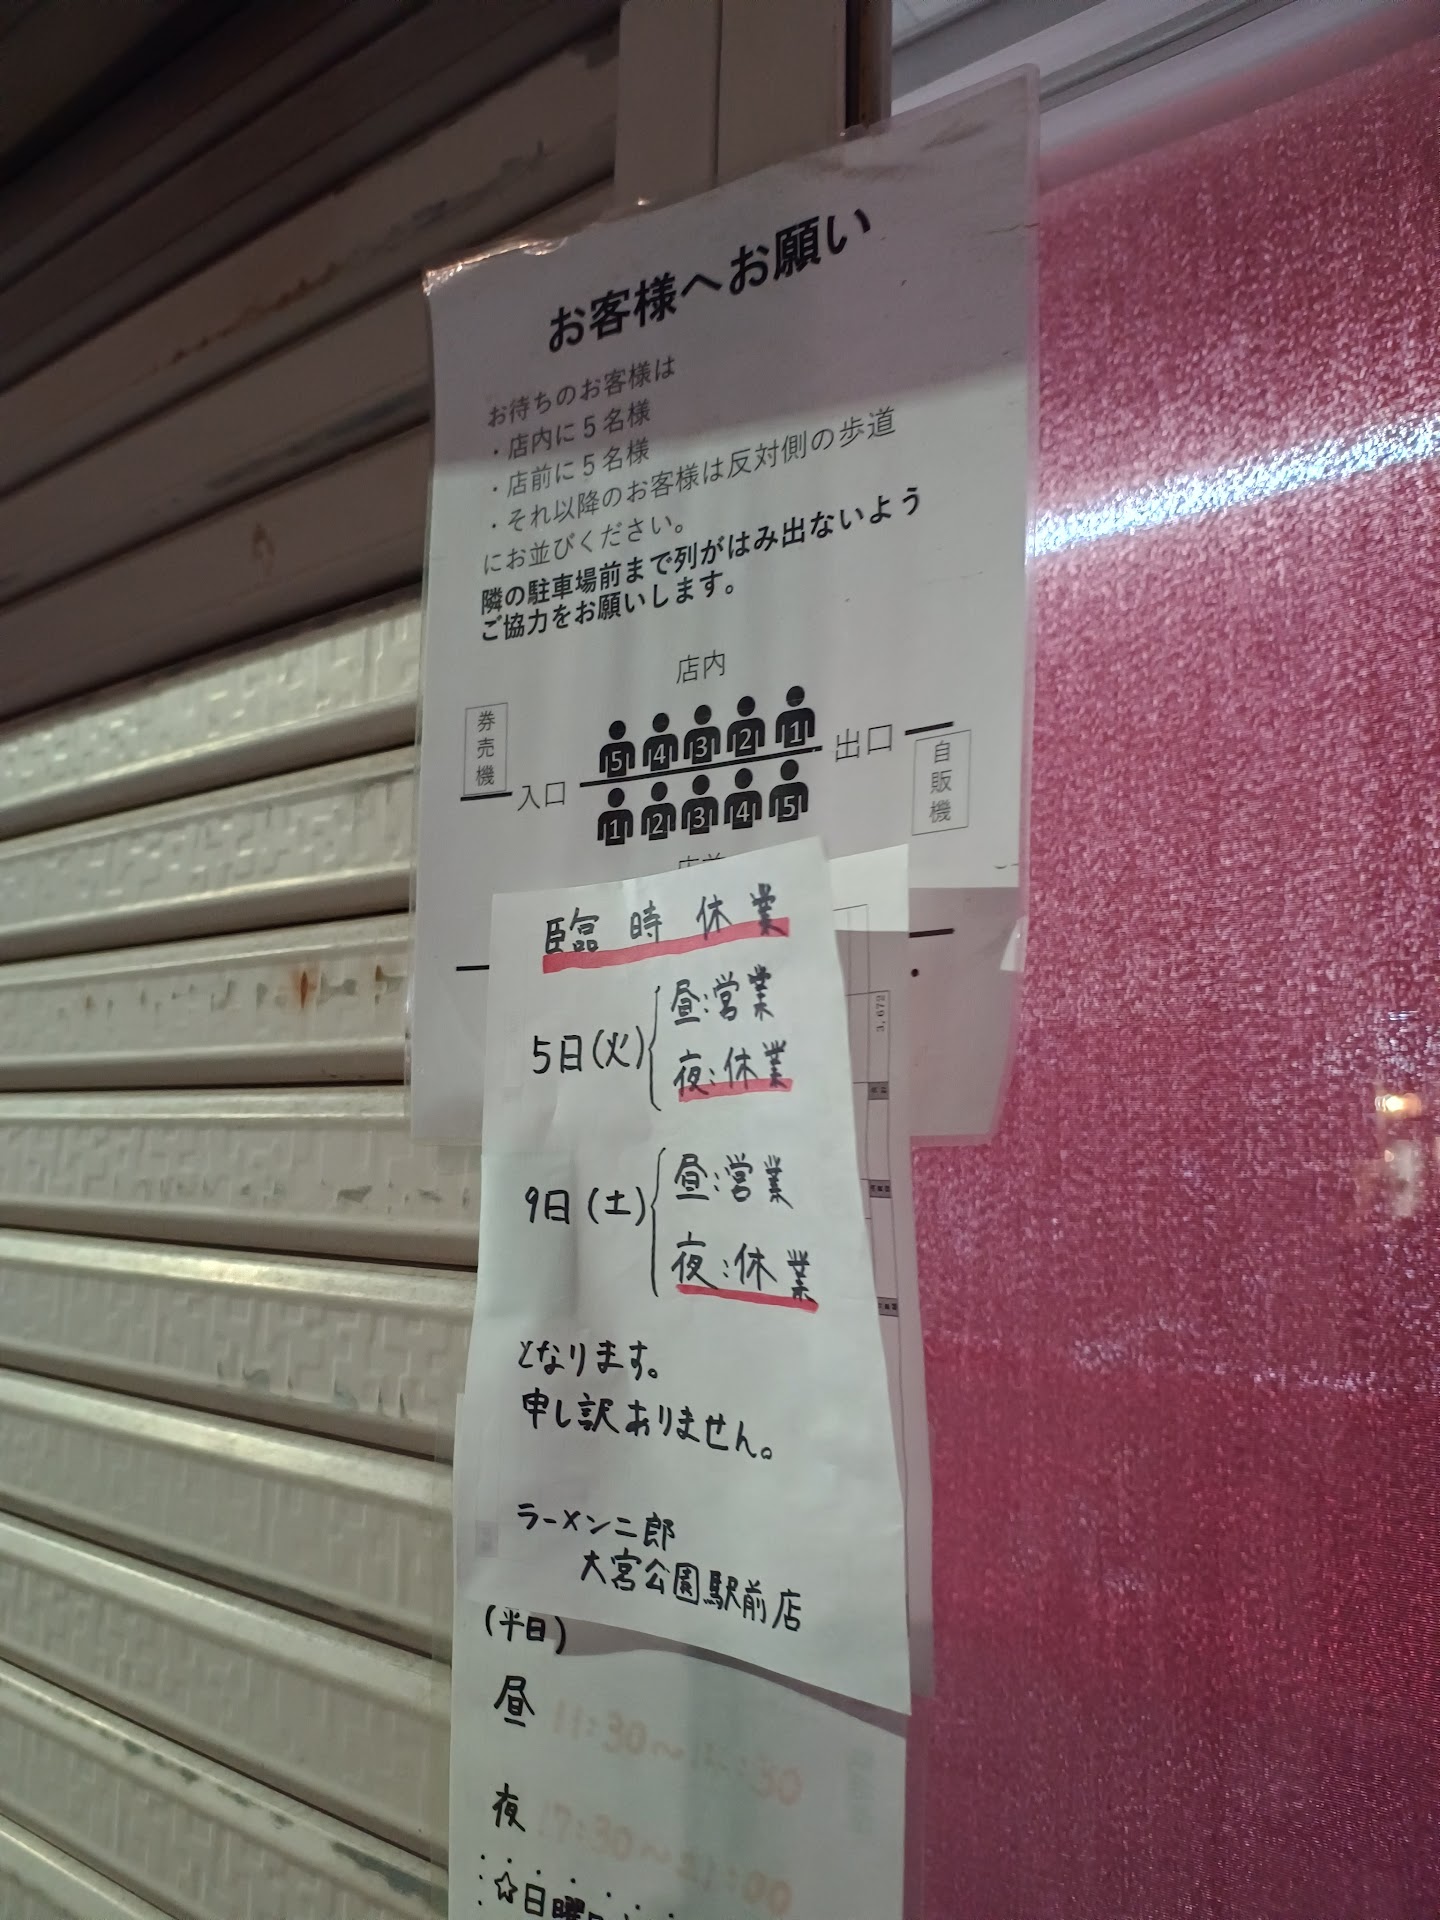 お客様へお願い
お待ちのお客様は
・店内に5名様
・店前に5名様
・それ以降のお客様は反対側の歩道
にお並びください。
隣の駐車場前まで列がはみ出ないよう
ご協力をお願いします。
店内
券売機
入口
5 4 3 2 1
出口
自販機
1 2 3 4 5
臨時休業
5日(火) 昼:営業
夜:休業
9日(土) 昼:営業
夜:休業
となります。
申し訳ありません。
ラーメン二郎
大宮公園駅前店
3,672
(平日)
昼 11:30〜
夜 17:30〜
☆日曜